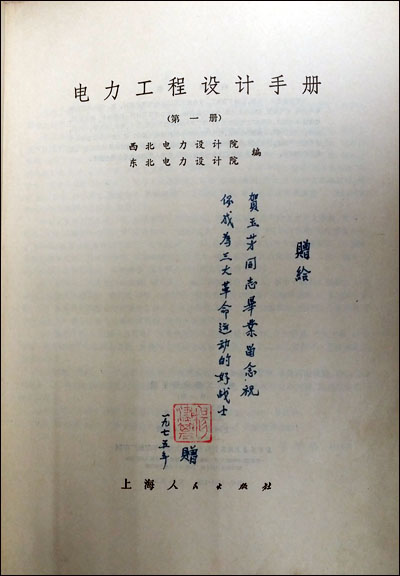 电力工程设计手册
(第一册)
西北电力设计院
东北电力设计院
编
贈给
賀玉芽同志畢業留念.祝
你成为三大革命运动的好战士
贈
一九七五年
上海人民出版社